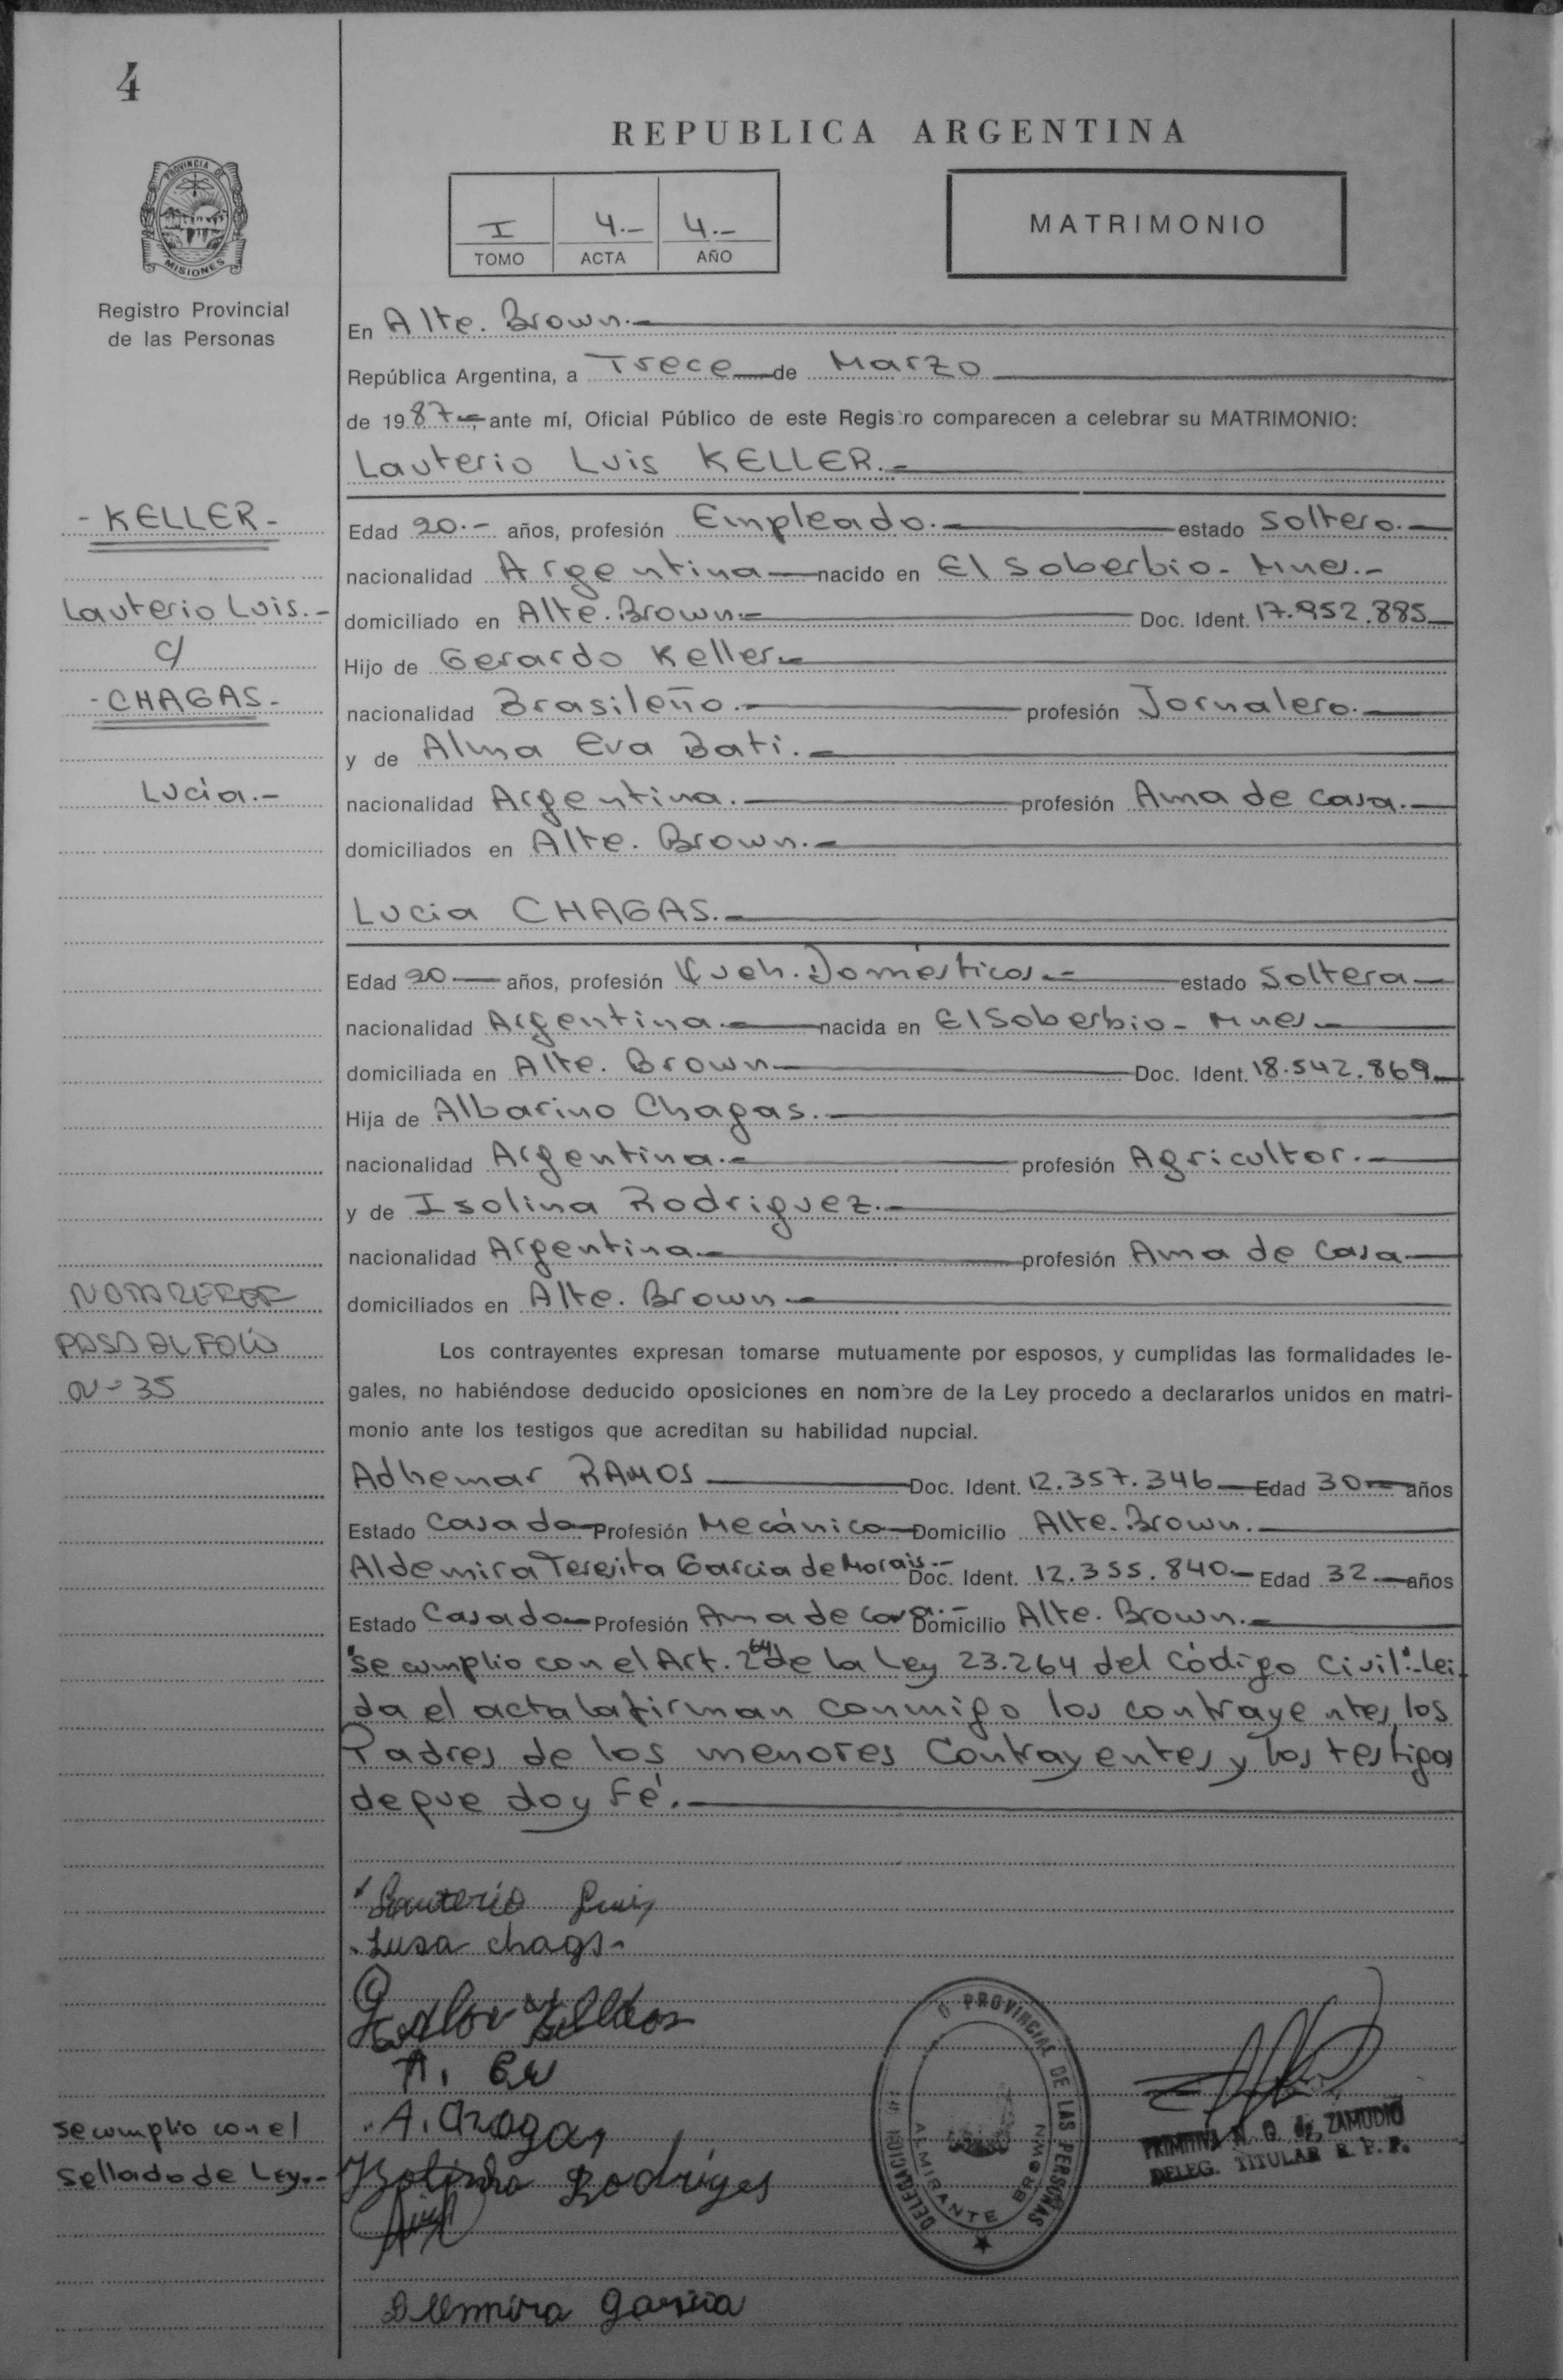 4
REPUBLICA ARGENTINA
PROVINCIA DE MISIONES
I 4.- 4.-
TOMO ACTA AÑO
MATRIMONIO
Registro Provincial
de las Personas
En Alte. Brown.-
República Argentina, a Trece de Marzo
de 1987.-, ante mí, Oficial Público de este Registro comparecen a celebrar su MATRIMONIO:
Lauterio Luis KELLER.-
- KELLER -
Lauterio Luis.-
c/
- CHAGAS -
Lucia.-
Edad 20.- años, profesión Empleado.- estado Soltero.-
nacionalidad Argentina nacido en El Soberbio - Mnes.-
domiciliado en Alte. Brown.- Doc. Ident. 17.952.885
Hijo de Gerardo Keller.-
nacionalidad Brasileño.- profesión Jornalero.-
y de Alma Eva Bati.-
nacionalidad Argentina.- profesión Ama de casa.-
domiciliados en Alte. Brown.-
Lucia CHAGAS.-
Edad 20 años, profesión Queh. Domésticos.- estado Soltera
nacionalidad Argentina.- nacida en El Soberbio - Mnes.-
domiciliada en Alte. Brown Doc. Ident. 18.542.869
Hija de Albarino Chagas.-
nacionalidad Argentina.- profesión Agricultor.-
y de Isolina Rodriguez.-
nacionalidad Argentina.- profesión Ama de casa
domiciliados en Alte. Brown.-
PASA AL FOLIO
Nº 35
Los contrayentes expresan tomarse mutuamente por esposos, y cumplidas las formalidades le-
gales, no habiéndose deducido oposiciones en nombre de la Ley procedo a declararlos unidos en matri-
monio ante los testigos que acreditan su habilidad nupcial.
Adhemar RAMOS Doc. Ident. 12.357.346 Edad 30 años
Estado Casado Profesión Mecánico Domicilio Alte. Brown.-
Aldemira Teresita Garcia de Morais.- Doc. Ident. 12.355.840.- Edad 32.- años
Estado Casada Profesión Ama de casa.- Domicilio Alte. Brown.-
"se cumplio con el Art. 264 de la Ley 23.264 del Código Civil".- Lei-
da el acta la firman conmigo los contrayentes, los
Padres de los menores Contrayentes y los testigos
de que doy Fé.-
Lauterio Luis
Lusa chags.
A. Chagas
Isolinha Rodriges
Aldemira Garcia
se cumplio con el
Sellado de Ley.-
DELEGACION PROVINCIAL DE LAS PERSONAS
ALMIRANTE BROWN
PRIMITIVA N. O. de ZAMUDIO
DELEG. TITULAR R. P. P.